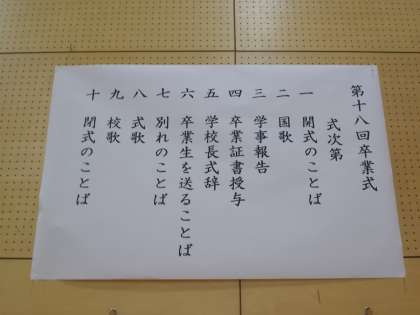 第十八回卒業式
式次第
一 開式のことば
二 国歌
三 学事報告
四 卒業証書授与
五 学校長式辞
六 卒業生を送ることば
七 別れのことば
八 式歌
九 校歌
十 閉式のことば